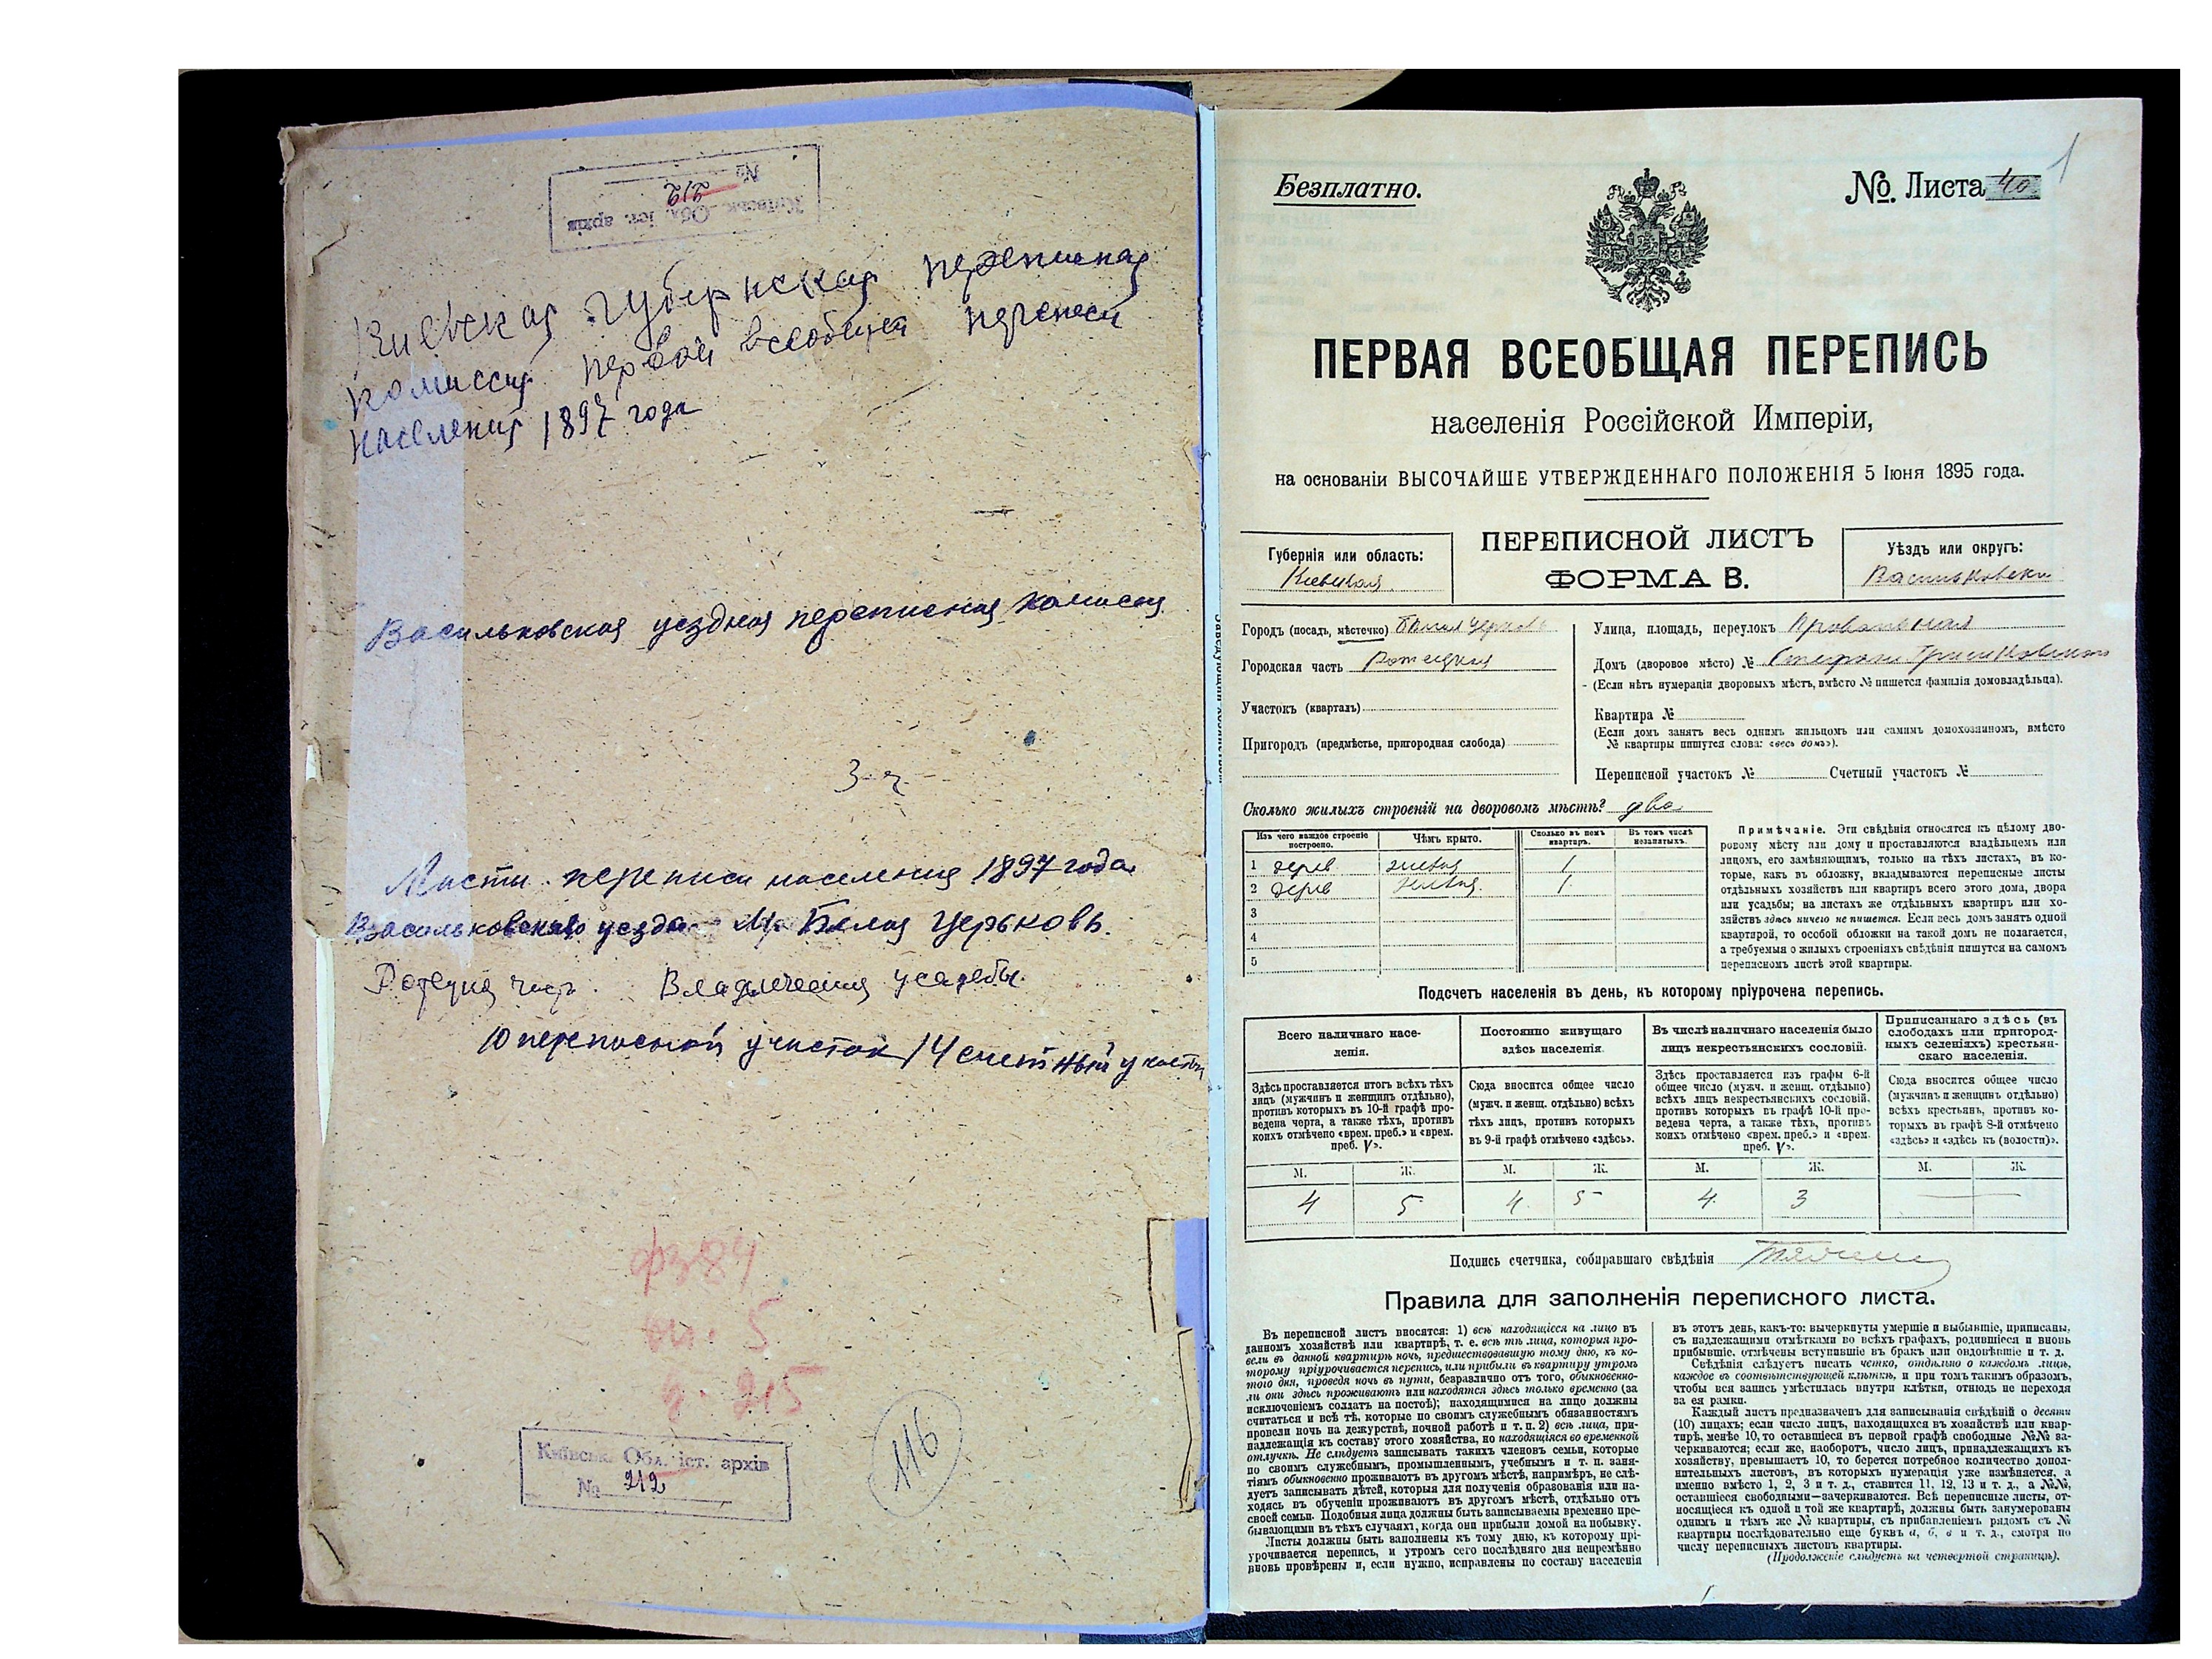 Київськ. Обл. іст. архів
№ 212
Киевская губернская переписная
комиссия первой всеобщей переписи
населения 1897 года
Васильковская уездная переписная комиссия
3-ч-
Листы переписи населения 1897 года
Васильковского уезда М. Белая Церковь.
часть. усадьбы.
10 переписной участок 14 счетный участок
ф 384
оп. 5
д. 215
Київськ. Обл. іст. архів
№ 212
116
1
Безплатно.
№. Листа 40
ПЕРВАЯ ВСЕОБЩАЯ ПЕРЕПИСЬ
населенія Россійской Имперіи,
на основаніи ВЫСОЧАЙШЕ УТВЕРЖДЕННАГО ПОЛОЖЕНІЯ 5 Іюня 1895 года.
Губернія или область:
Киевская
ПЕРЕПИСНОЙ ЛИСТЪ
ФОРМА В.
Уѣздъ или округъ:
Васильковски
Городъ (посадъ, мѣстечко) Бѣлая Церковь
Городская часть
Участокъ (кварталъ)
Пригородъ (предмѣстье, пригородная слобода)
Улица, площадь, переулокъ
Домъ (дворовое мѣсто) №
(Если нѣтъ нумераціи дворовыхъ мѣстъ, вмѣсто № пишется фамилія домовладѣльца).
Квартира №
(Если домъ занятъ весь однимъ жильцомъ или самимъ домохозяиномъ, вмѣсто
№ квартиры пишутся слова: «весь домъ»).
Переписной участокъ № Счетный участокъ №
Сколько жилыхъ строеній на дворовомъ мѣстѣ? два
Изъ чего каждое строеніе построено.
Чѣмъ крыто.
Сколько въ немъ квартиръ.
Въ томъ числѣ незанятыхъ.
1 дерев 1
2 дерев 1
3
4
5
Примѣчаніе. Эти свѣдѣнія относятся къ цѣлому дво-
ровому мѣсту или дому и проставляются владѣльцемъ или
лицомъ, его замѣняющимъ, только на тѣхъ листахъ, въ ко-
торые, какъ въ обложку, вкладываются переписные листы
отдѣльныхъ хозяйствъ или квартиръ всего этого дома, двора
или усадьбы; на листахъ же отдѣльныхъ квартиръ или хо-
зяйствъ здѣсь ничего не пишется. Если весь домъ занятъ одной
квартирой, то особой обложки на такой домъ не полагается,
а требуемыя о жилыхъ строеніяхъ свѣдѣнія пишутся на самомъ
переписномъ листѣ этой квартиры.
Подсчетъ населенія въ день, къ которому пріурочена перепись.
Всего наличнаго насе-
ленія.
Постоянно живущаго
здѣсь населенія.
Въ числѣ наличнаго населенія было
лицъ некрестьянскихъ сословій.
Приписаннаго здѣсь (въ
слободахъ или пригород-
ныхъ селеніяхъ) крестьян-
скаго населенія.
Здѣсь проставляется итогъ всѣхъ тѣхъ
лицъ (мужчинъ и женщинъ отдѣльно),
противъ которыхъ въ 10-й графѣ про-
ведена черта, а также тѣхъ, противъ
коихъ отмѣчено «врем. преб.» и «врем.
преб. V».
Сюда вносится общее число
(мужч. и женщ. отдѣльно) всѣхъ
тѣхъ лицъ, противъ которыхъ
въ 9-й графѣ отмѣчено «здѣсь».
Здѣсь проставляется изъ графы 6-й
общее число (мужч. и женщ. отдѣльно)
всѣхъ лицъ некрестьянскихъ сословій,
противъ которыхъ въ графѣ 10-й про-
ведена черта, а также тѣхъ, противъ
коихъ отмѣчено «врем. преб.» и «врем.
преб. V».
Сюда вносится общее число
(мужчинъ и женщинъ отдѣльно)
всѣхъ крестьянъ, противъ ко-
торыхъ въ графѣ 8-й отмѣчено
«здѣсь» и «здѣсь къ (волости)».
М. Ж. М. Ж. М. Ж. М. Ж.
4 5 4 5 4 3 —
Подпись счетчика, собиравшаго свѣдѣнія
Правила для заполненія переписного листа.
Въ переписной листъ вносятся: 1) всѣ находящіеся на лицо въ
данномъ хозяйствѣ или квартирѣ, т. е. всѣ тѣ лица, которыя про-
вели въ данной квартирѣ ночь, предшествовавшую тому дню, къ ко-
торому пріурочивается перепись, или прибыли въ квартиру утромъ
того дня, проведя ночь въ пути, безразлично отъ того, обыкновенно-
ли они здѣсь проживаютъ или находятся здѣсь только временно (за
исключеніемъ солдатъ на постоѣ); находящимися на лицо должны
считаться и всѣ тѣ, которые по своимъ служебнымъ обязанностямъ
провели ночь на дежурствѣ, ночной работѣ и т. п. 2) всѣ лица, при-
надлежащія къ составу этого хозяйства, но находящіяся во временной
отлучкѣ. Не слѣдуетъ записывать такихъ членовъ семьи, которые
по своимъ служебнымъ, промышленнымъ, учебнымъ и т. п. заня-
тіямъ обыкновенно проживаютъ въ другомъ мѣстѣ, напримѣръ, не слѣ-
дуетъ записывать дѣтей, которыя для полученія образованія или на-
ходясь въ обученіи проживаютъ въ другомъ мѣстѣ, отдѣльно отъ
своей семьи. Подобныя лица должны быть записываемы временно пре-
бывающими въ тѣхъ случаяхъ, когда они прибыли домой на побывку.
Листы должны быть заполнены къ тому дню, къ которому прі-
урочивается перепись, и утромъ сего послѣдняго дня непремѣнно
вновь провѣрены и, если нужно, исправлены по составу населенія
въ этотъ день, какъ-то: вычеркнуты умершіе и выбывшіе, приписаны,
съ надлежащими отмѣтками во всѣхъ графахъ, родившіеся и вновь
прибывшіе, отмѣчены вступившіе въ бракъ или овдовѣвшіе и т. д.
Свѣдѣнія слѣдуетъ писать четко, отдѣльно о каждомъ лицѣ,
каждое въ соотвѣтствующей клѣткѣ, и при томъ такимъ образомъ,
чтобы вся запись умѣстилась внутри клѣтки, отнюдь не переходя
за ея рамки.
Каждый листъ предназначенъ для записыванія свѣдѣній о десяти
(10) лицахъ; если число лицъ, находящихся въ хозяйствѣ или квар-
тирѣ, менѣе 10, то оставшіеся въ первой графѣ свободные №№ за-
черкиваются; если же, наоборотъ, число лицъ, принадлежащихъ къ
хозяйству, превышаетъ 10, то берется потребное количество допол-
нительныхъ листовъ, въ которыхъ нумерація уже измѣняется, а
именно вмѣсто 1, 2, 3 и т. д., ставится 11, 12, 13 и т. д., а №№,
оставшіеся свободными—зачеркиваются. Всѣ переписные листы, от-
носящіеся къ одной и той же квартирѣ, должны быть занумерованы
однимъ и тѣмъ же № квартиры, съ прибавленіемъ рядомъ съ №
квартиры послѣдовательно еще буквъ а, б, в и т. д., смотря по
числу переписныхъ листовъ квартиры.
(Продолженіе слѣдуетъ на четвертой страницѣ).